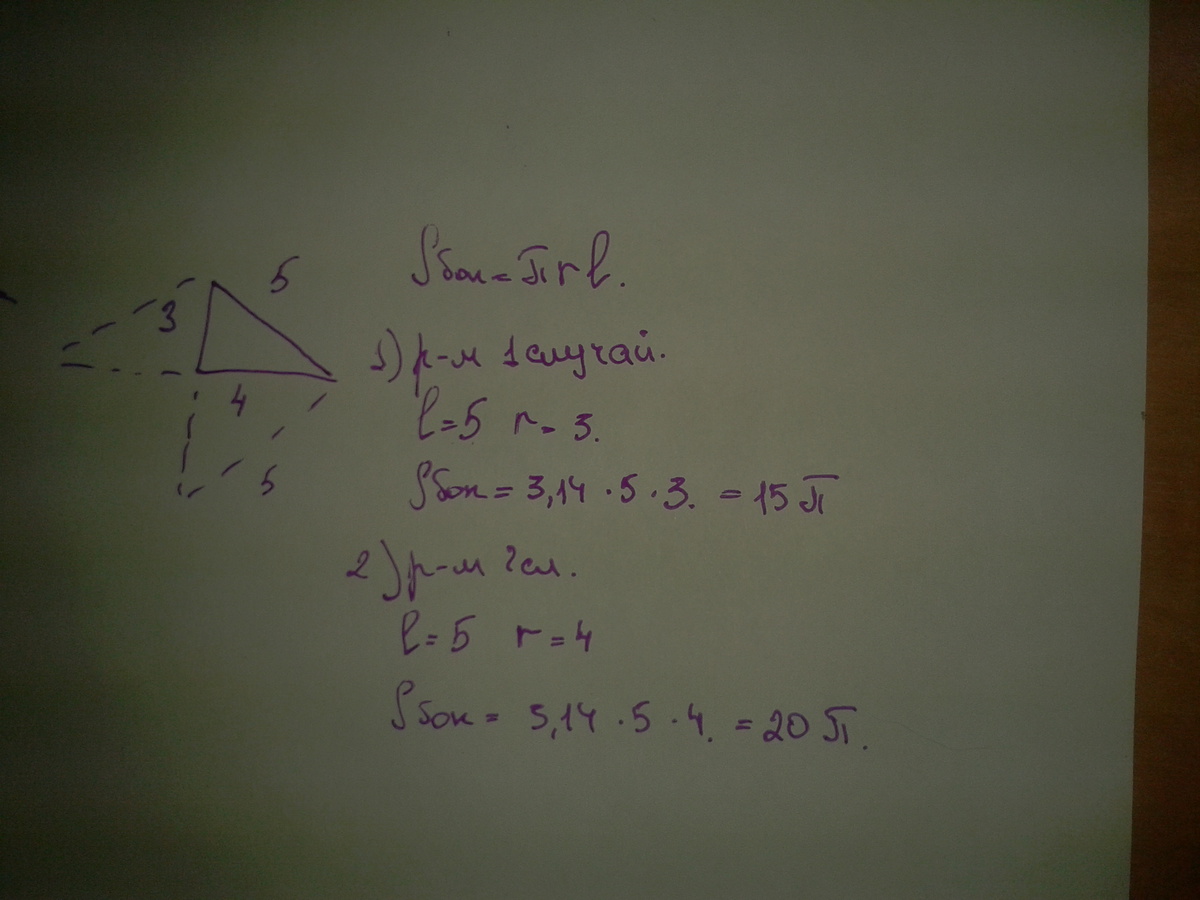 5
3
4
5
Sбок = π r l.
1) р-м 1 случай.
l = 5 r = 3.
Sбок = 3,14 · 5 · 3. = 15 π
2) р-м 2сл.
l = 5 r = 4
Sбок = 3,14 · 5 · 4. = 20 π.